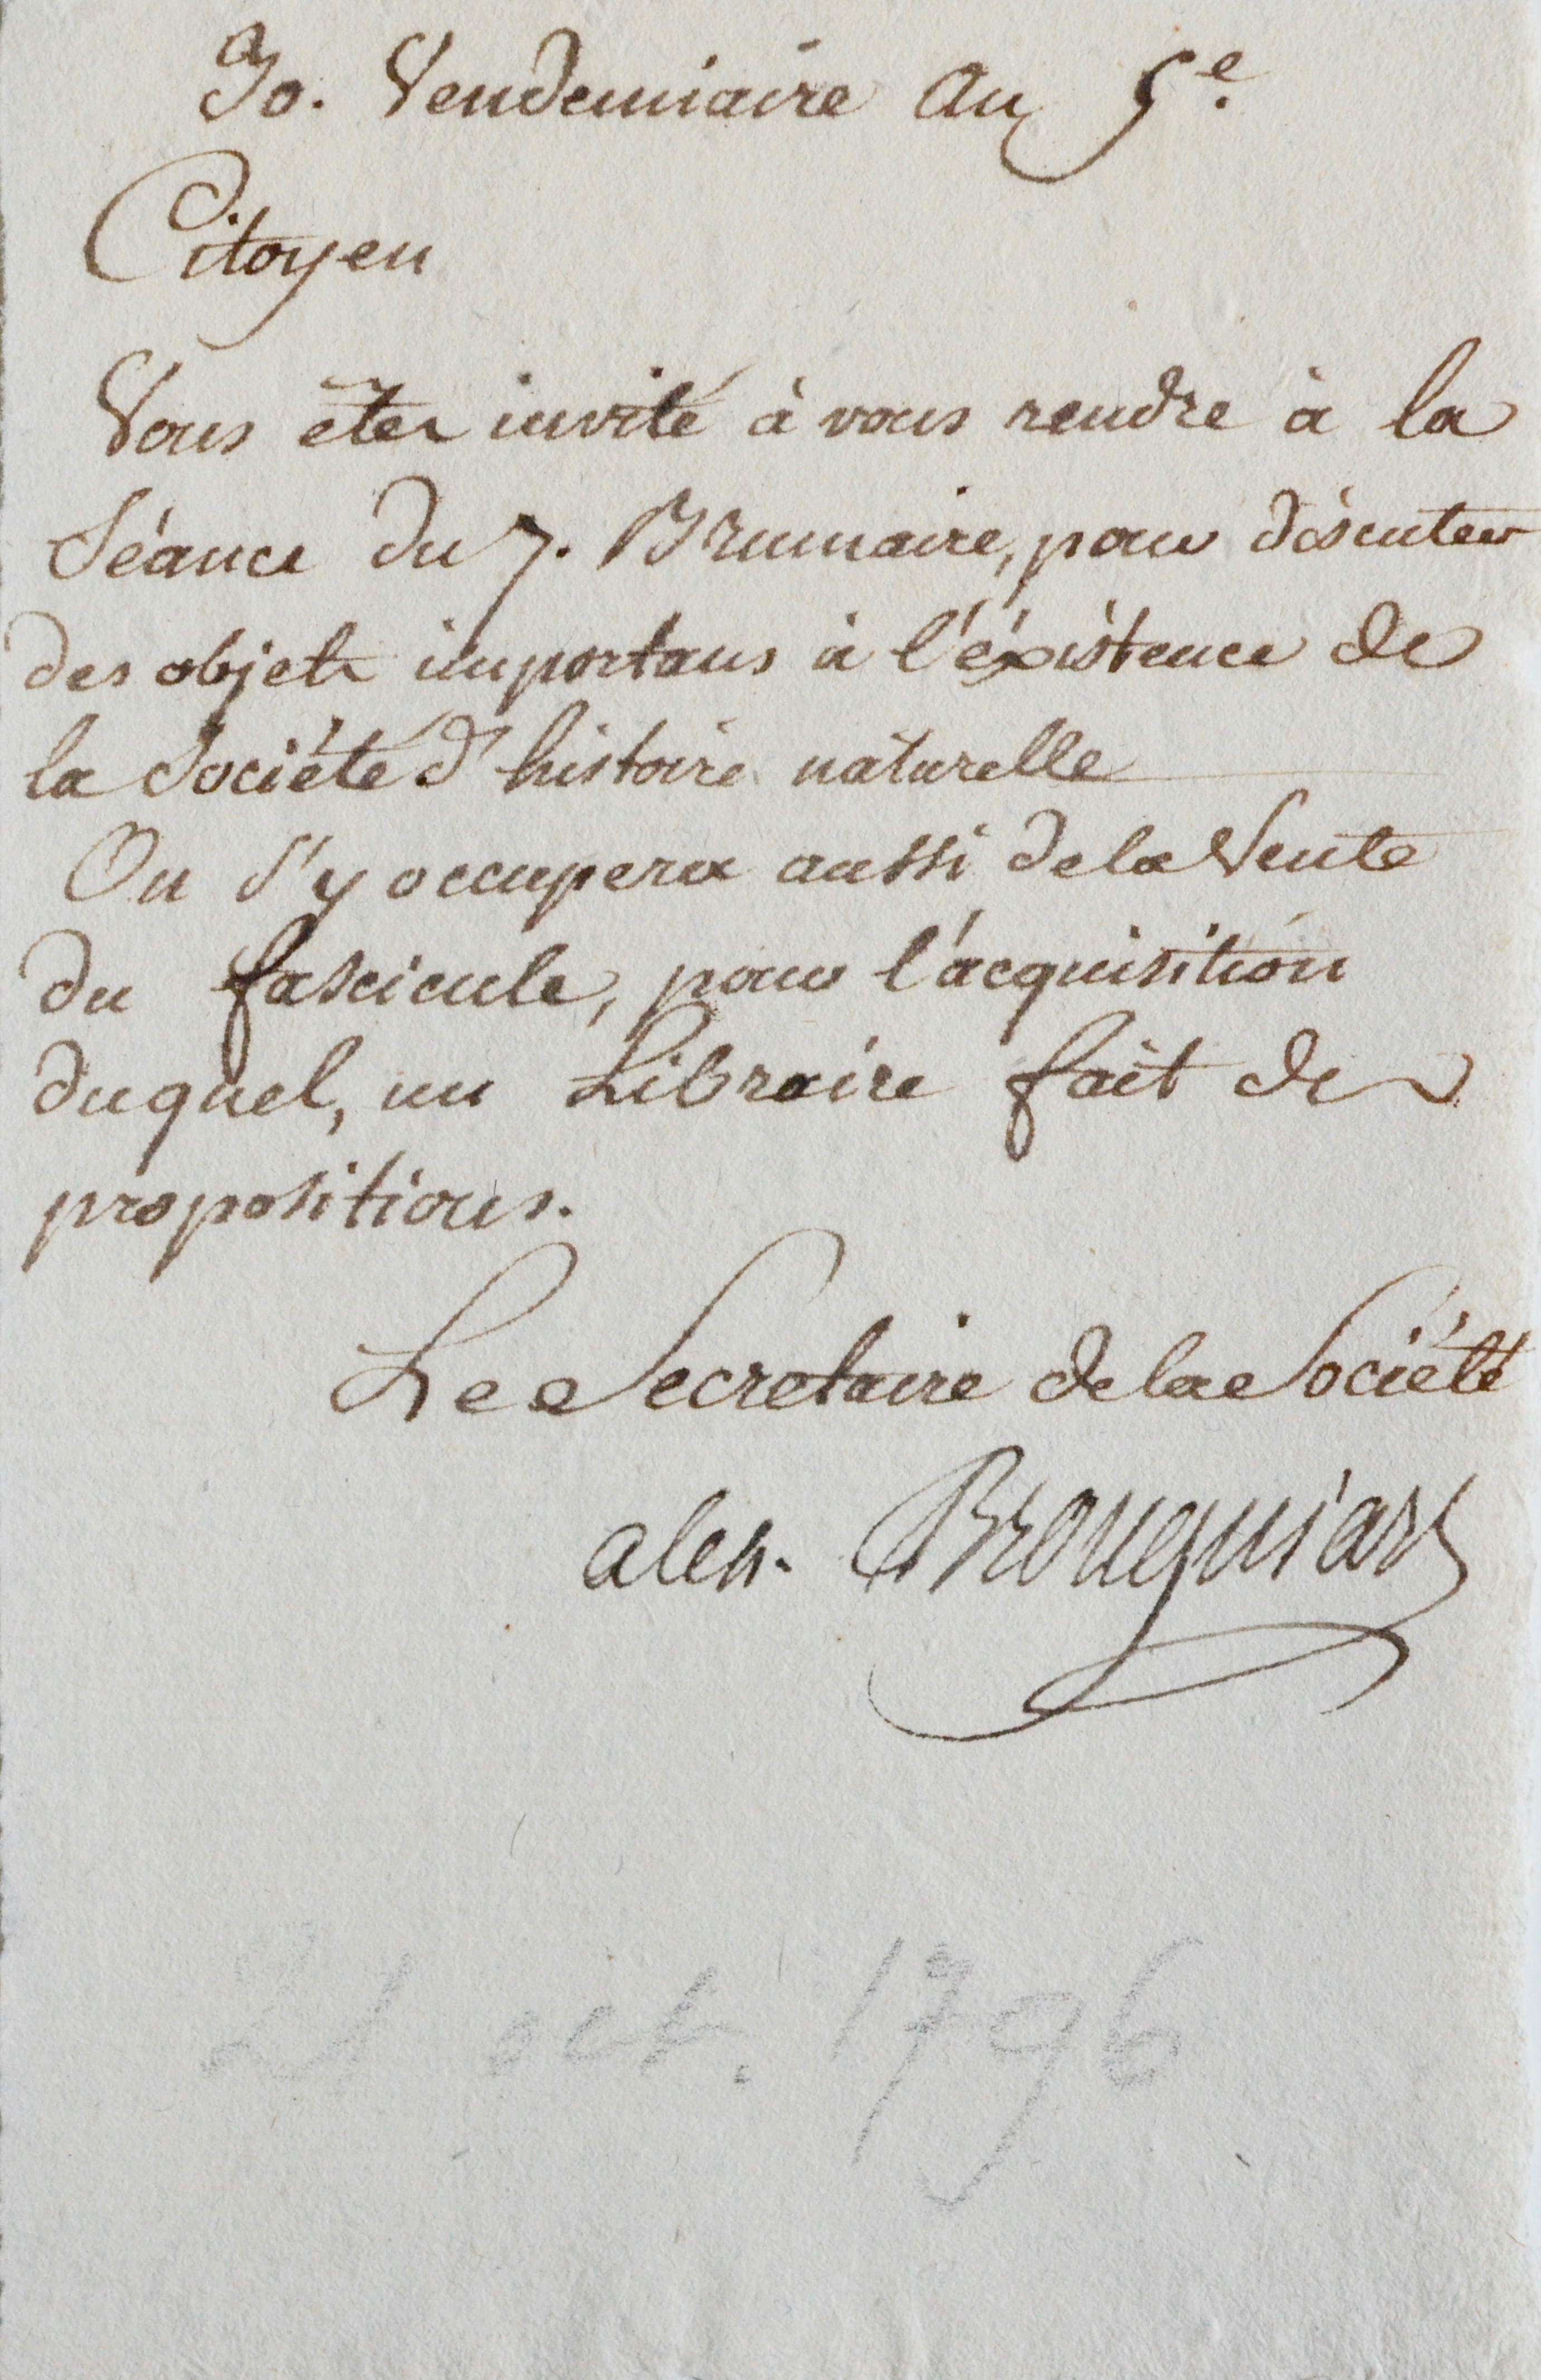 30. Vendemiaire An 5e.
Citoyen
Vous étes invité à vous rendre à la
Séance du 7. Brumaire, pour discuter
des objets importans à l'éxistence de
la Société d'histoire naturelle
On s'y occupera aussi de la Vente
du fascicule, pour l'acquisition
duquel, un Libraire fait des
propositions.
Le Secretaire de la Société
alex. Brongniart
21 oct. 1796